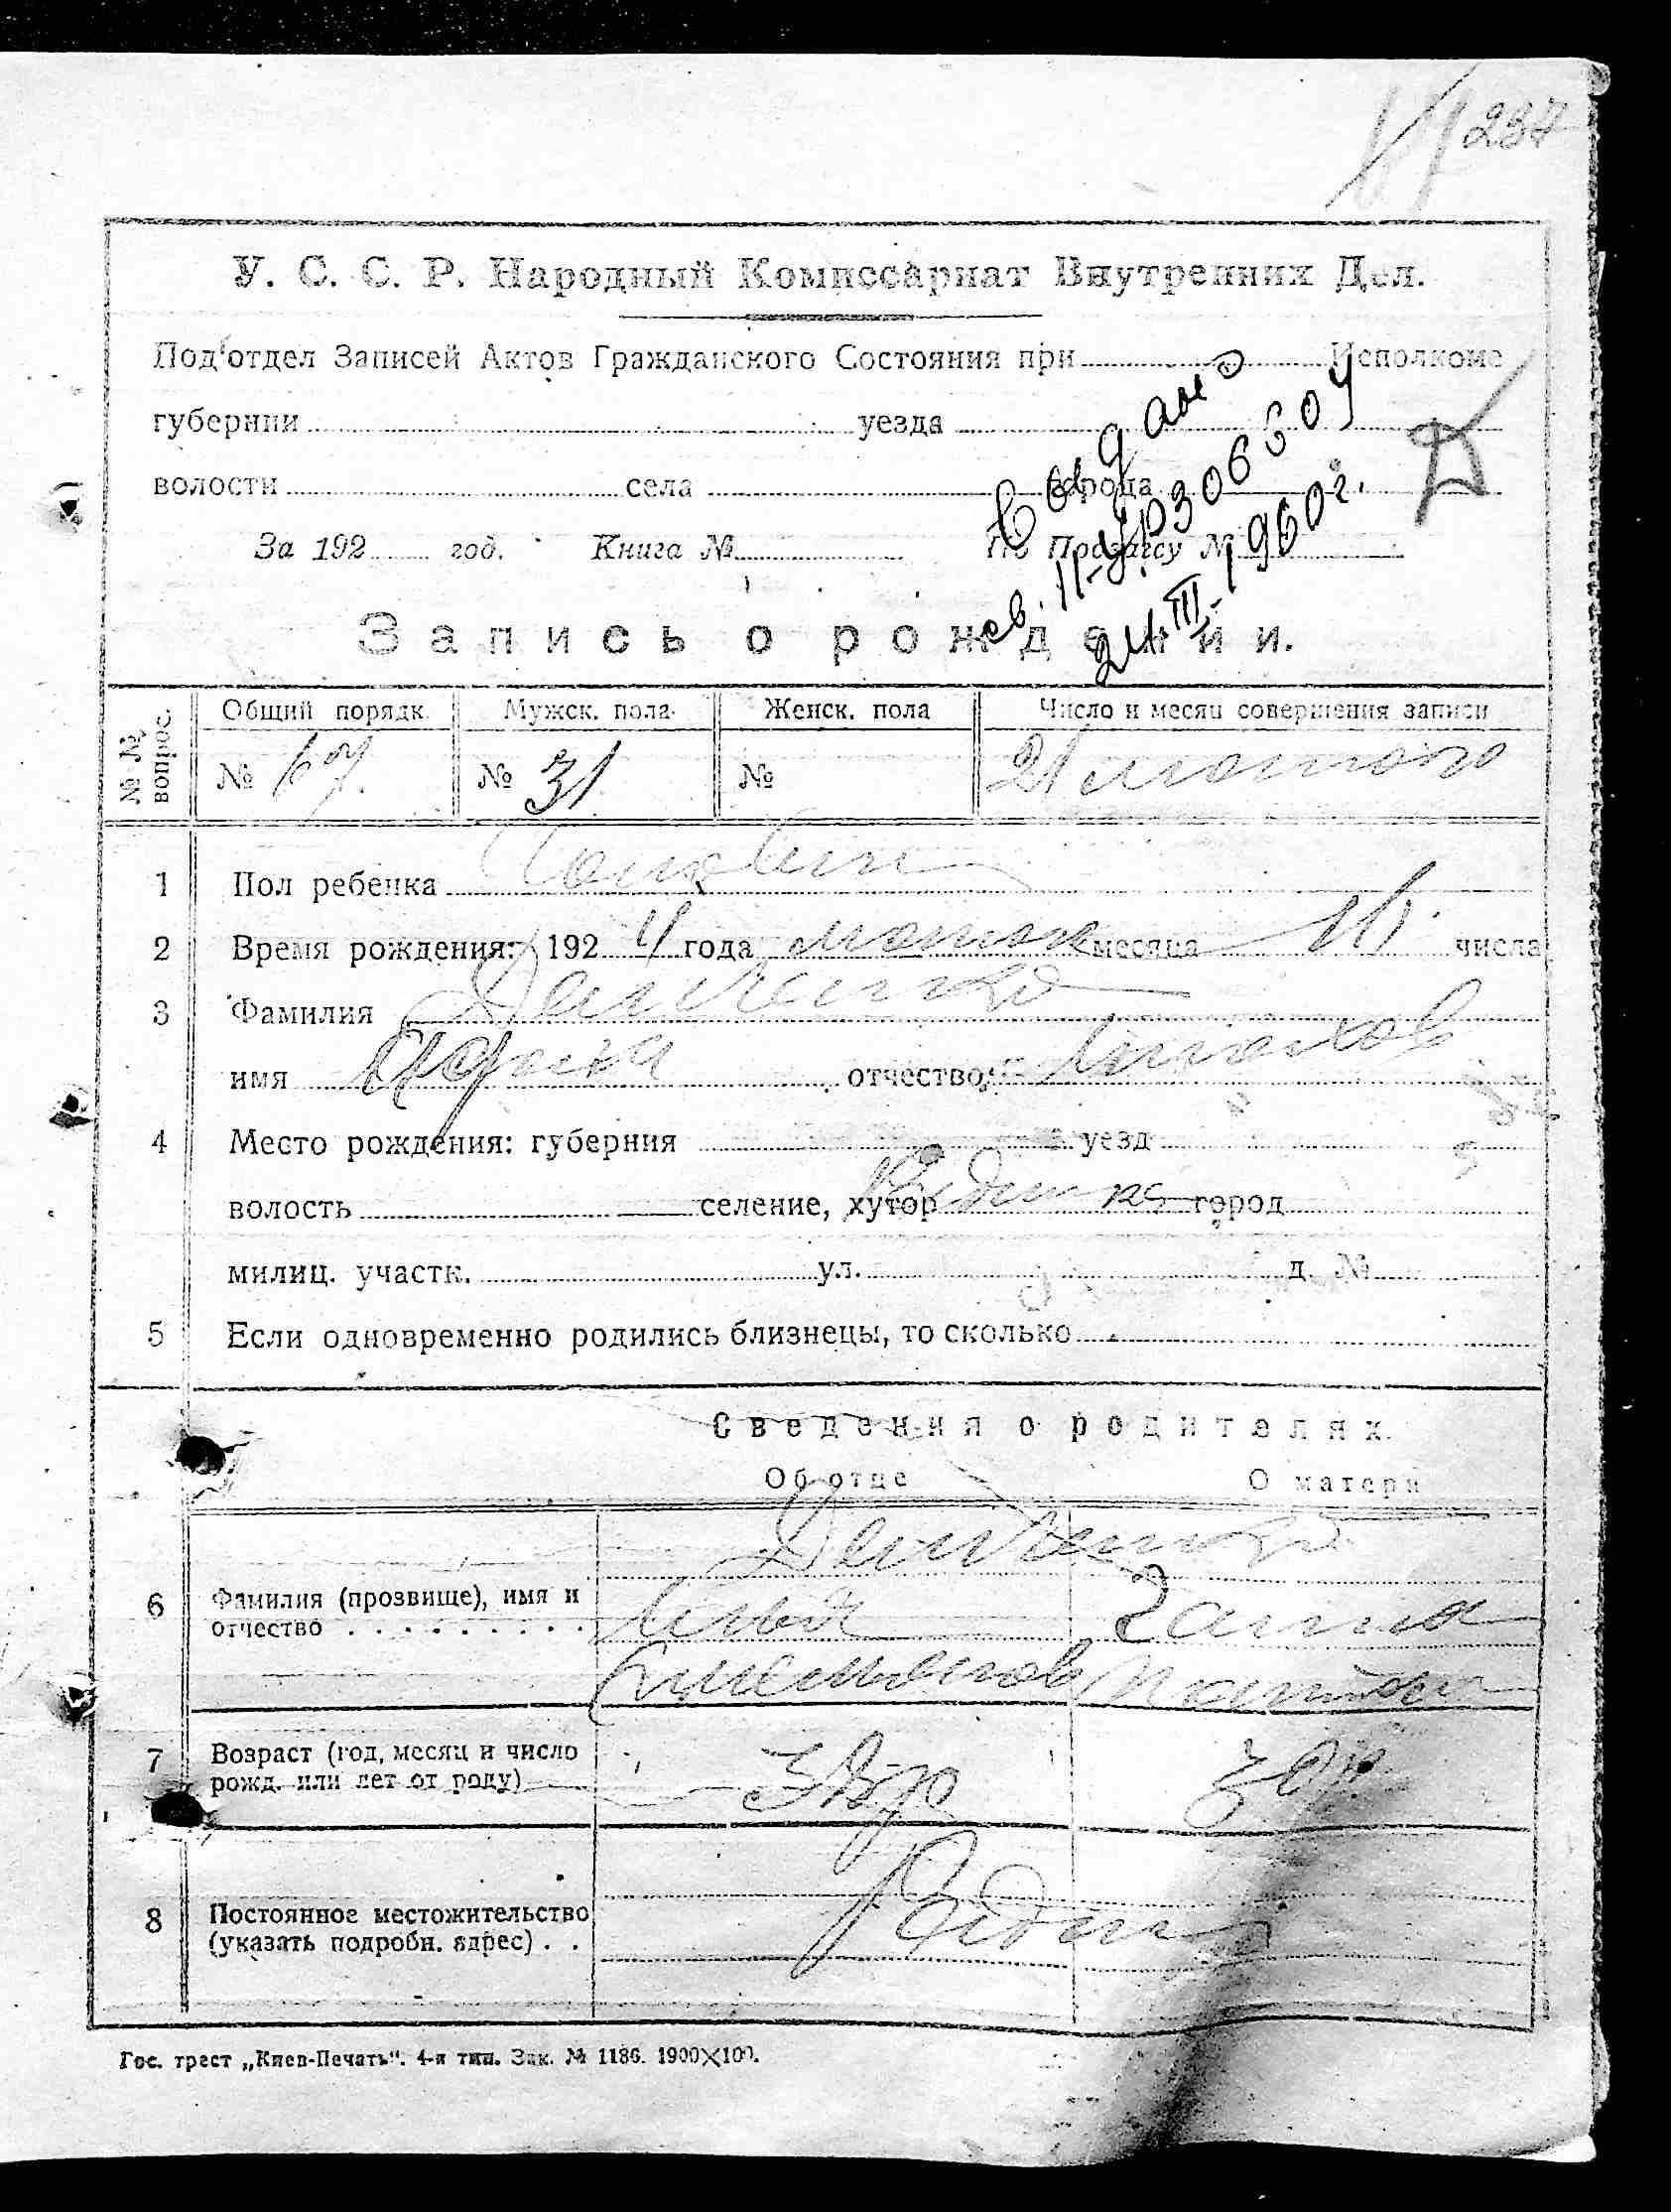 237
У. С. С. Р. Народный Комиссариат Внутренних Дел.
Под'отдел Записей Актов Гражданского Состояния при Исполкоме
губернии уезда
волости села города
За 192 год. Книга № По Прозагсу №
Выдано
св. 11-УР 306604
24 III-1960 г.
Запись о рождении.
№№ вопрос.
Общий порядк. Мужск. пола Женск. пола Число и месяц совершения записи
№ 67 № 31 № 21 лютого
1 Пол ребенка
2 Время рождения: 1924 года лютого месяца числа
3 Фамилия Демченко
имя отчество:
4 Место рождения: губерния уезд
волость селение, хутор город
милиц. участк. ул. д. №
5 Если одновременно родились близнецы, то сколько
Сведения о родителях.
Об отце О матери
Демченко
6 Фамилия (прозвище), имя и
отчество Ганна
7 Возраст (год, месяц и число
рожд. или лет от роду)
8 Постоянное местожительство
(указать подробн. адрес)
Гос. трест „Киев-Печать“. 4-я тип. Зак. № 1186. 1900×100.